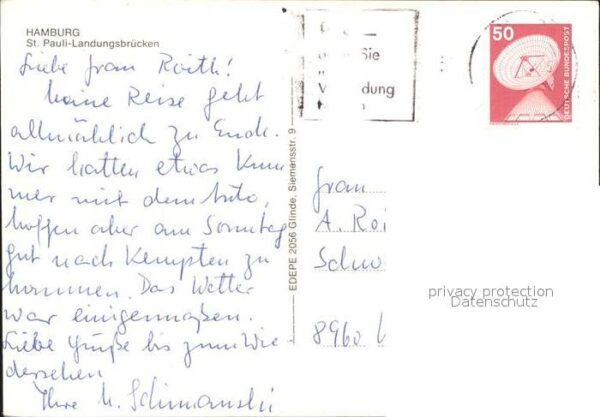 HAMBURG
St. Pauli-Landungsbrücken
Liebe Frau Roith!
Meine Reise geht
allmählich zu Ende.
Wir hatten etwas Kum
mer mit dem Auto,
hoffen aber am Sonntag
gut nach Kempten zu
kommen. Das Wetter
war einigermaßen.
Liebe Grüße bis zum Wie
dersehen
Ihre U. Schimanski
EDEPE 2056 Glinde, Siemensstr. 9
50
DEUTSCHE BUNDESPOST
Frau
A. Roi
Schw
8960
privacy protection
Datenschutz